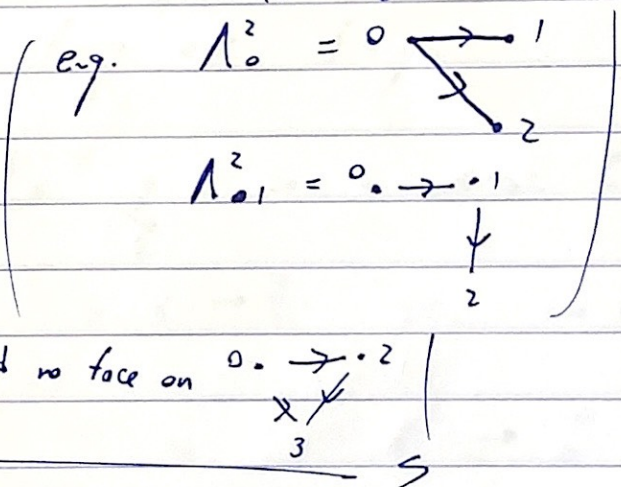 ( e.g. Λ²₀ = 0 → 1
2
Λ²₁ = 0 . → . 1
↓
2 )
no face on 0 . → . 2
x
3
S